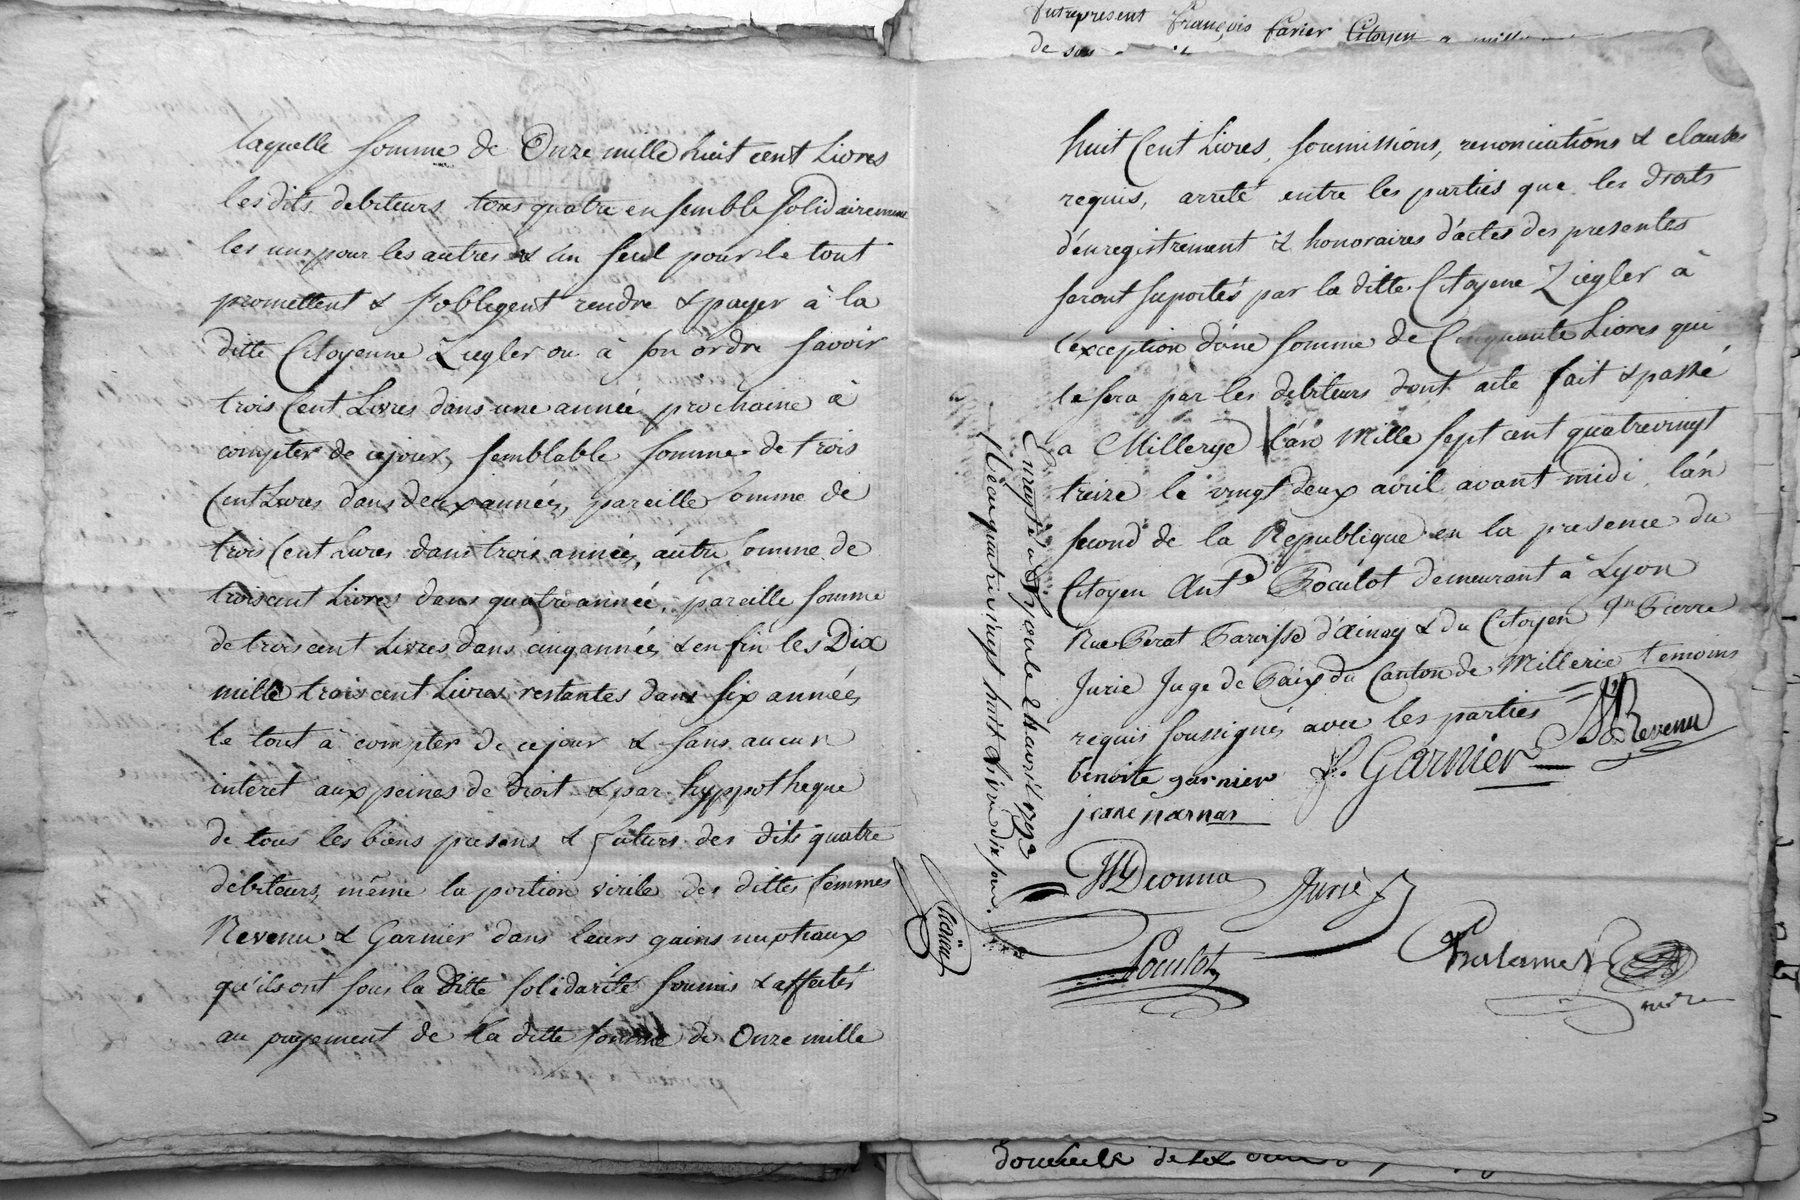 laquelle somme de Onze mille huit cent Livres
les dits debiteurs tous quatre ensemble solidairement
les uns pour les autres & un seul pour le tout
promettent & s'obligent rendre & payer à la
ditte Citoyenne Ziegler ou à son ordre savoir
trois Cent Livres dans une année prochaine à
compter de cejour, semblable somme de trois
Cent Livres dans deux années, pareille somme de
trois Cent Livres dans trois années, autre somme de
trois cent Livres dans quatre année, pareille somme
de trois cent Livres dans cinq années & enfin les Dix
mille trois cent Livres restantes dans six années
le tout à compter de cejour & sans aucun
intèret aux peines de droit & par hyppotheque
de tous les biens presens & futurs des dits quatre
debiteurs, même la portion virile des dittes femmes
Revenu & Garnier dans leurs gains nuptiaux
qu'ils ont sous la ditte solidarité soumis & affectés
au payement de la ditte somme de Onze mille
François Favier Citoyen
de son
huit Cent Livres, soumissions, renonciations & clauses
requis, arreté entre les parties que les droits
d'enregistrement & honoraires d'actes des presentes
seront suportés par la ditte Citoyene Ziegler à
l'exception d'une somme de Cinquante Livres qui
le sera par les debiteurs dont acte fait & passé
a Millerye L'an Mille sept cent quatrevingt
treize le vingt deux avril avant midi l'an
second de la Republique en la presence du
Citoyen Ant.e Poculot demeurant à Lyon
Rue Perat Paroisse d'ainay & du Citoyen Jn Pierre
Jurie Juge de Paix du Canton de Millerie temoins
requis soussignés avec les parties
Revenu
benoite garnier
f. Garnier
jeane narnas
Deonna
Jurie
Poculot
avril 1793
quatre vingt huit Livre dix sous